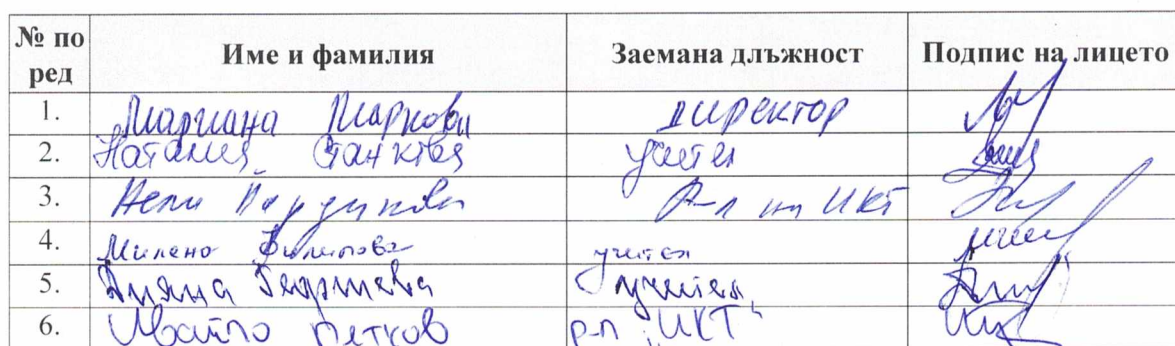 № по ред Име и фамилия Заемана длъжност Подпис на лицето
1. Мариана Маркова директор
2. Наталия учител
3. Нели Р-л на ИКТ
4. Милена Филипова учител
5. Дияна Георгиева учител
6. Ивайло Петков р-л "ИКТ"